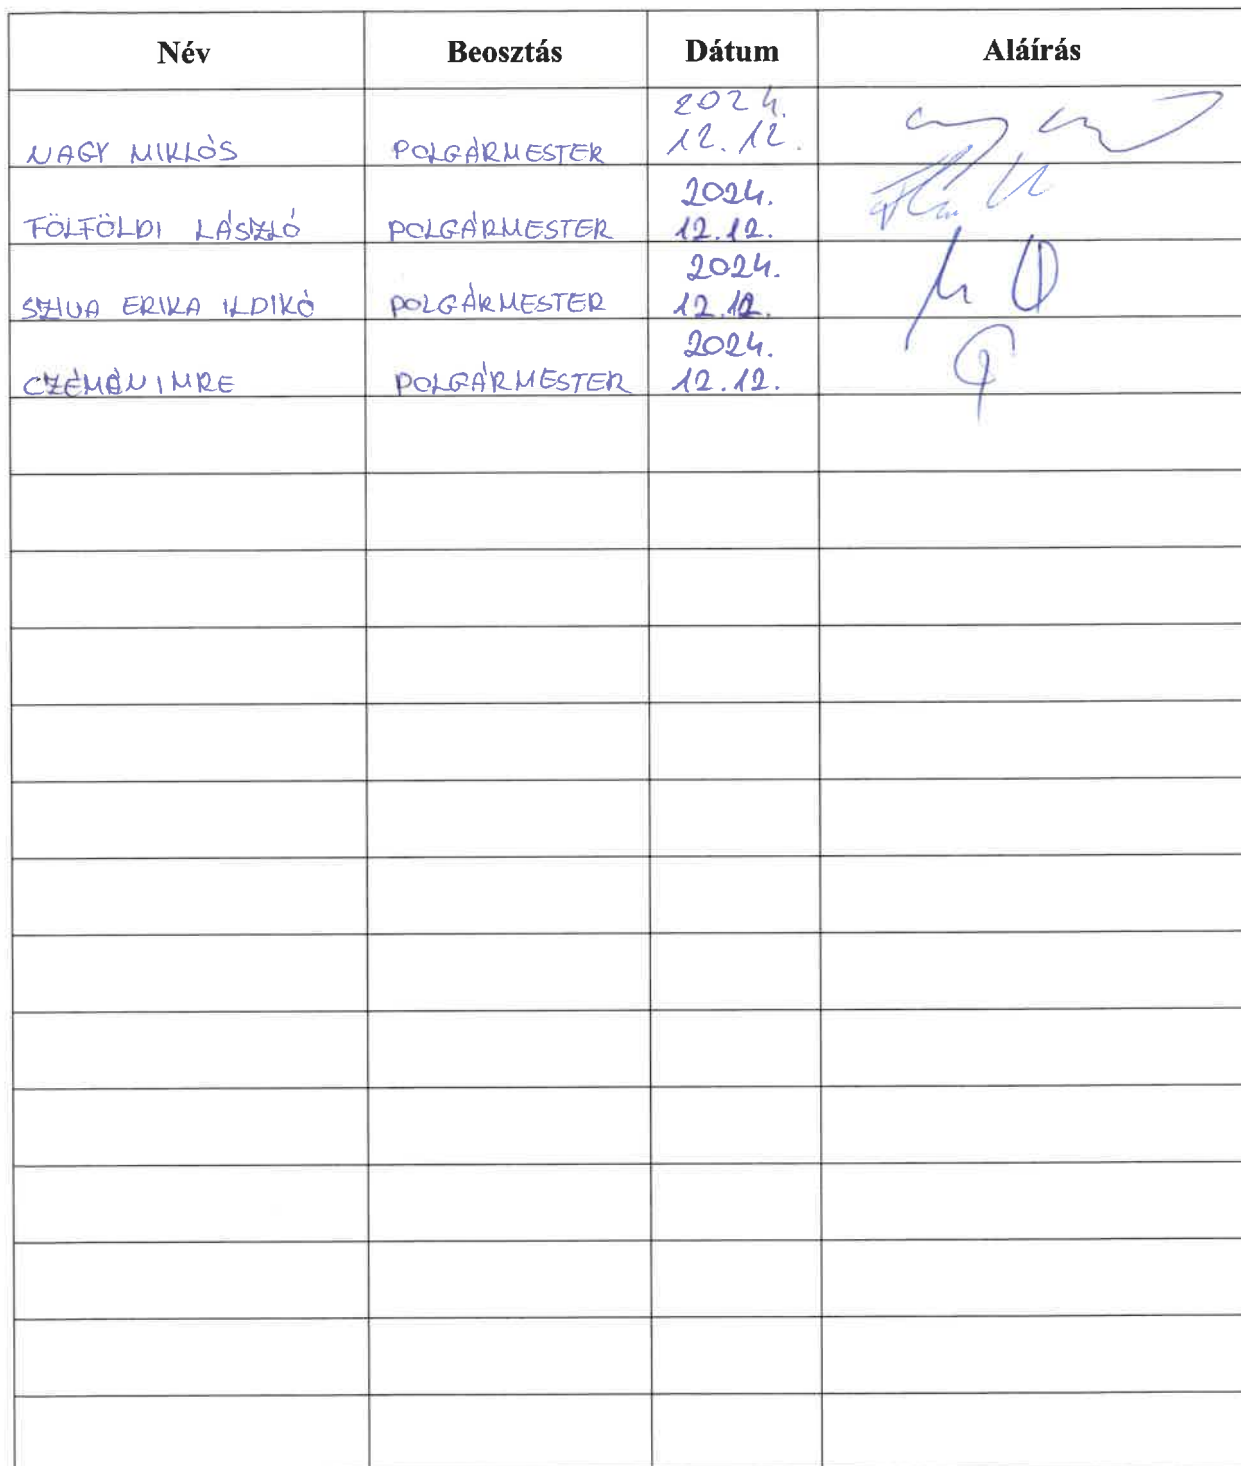 Név Beosztás Dátum Aláírás
2024.
NAGY MIKLÓS POLGÁRMESTER 12.12.
2024.
FÖLFÖLDI LÁSZLÓ POLGÁRMESTER 12.12.
2024.
SZIVA ERIKA ILDIKÓ POLGÁRMESTER 12.12.
2024.
CZÉMÁN IMRE POLGÁRMESTER 12.12.